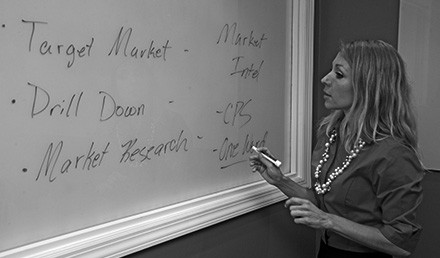 • Target Market - Market
Intel
• Drill Down - - CPS
• Market Research - - One